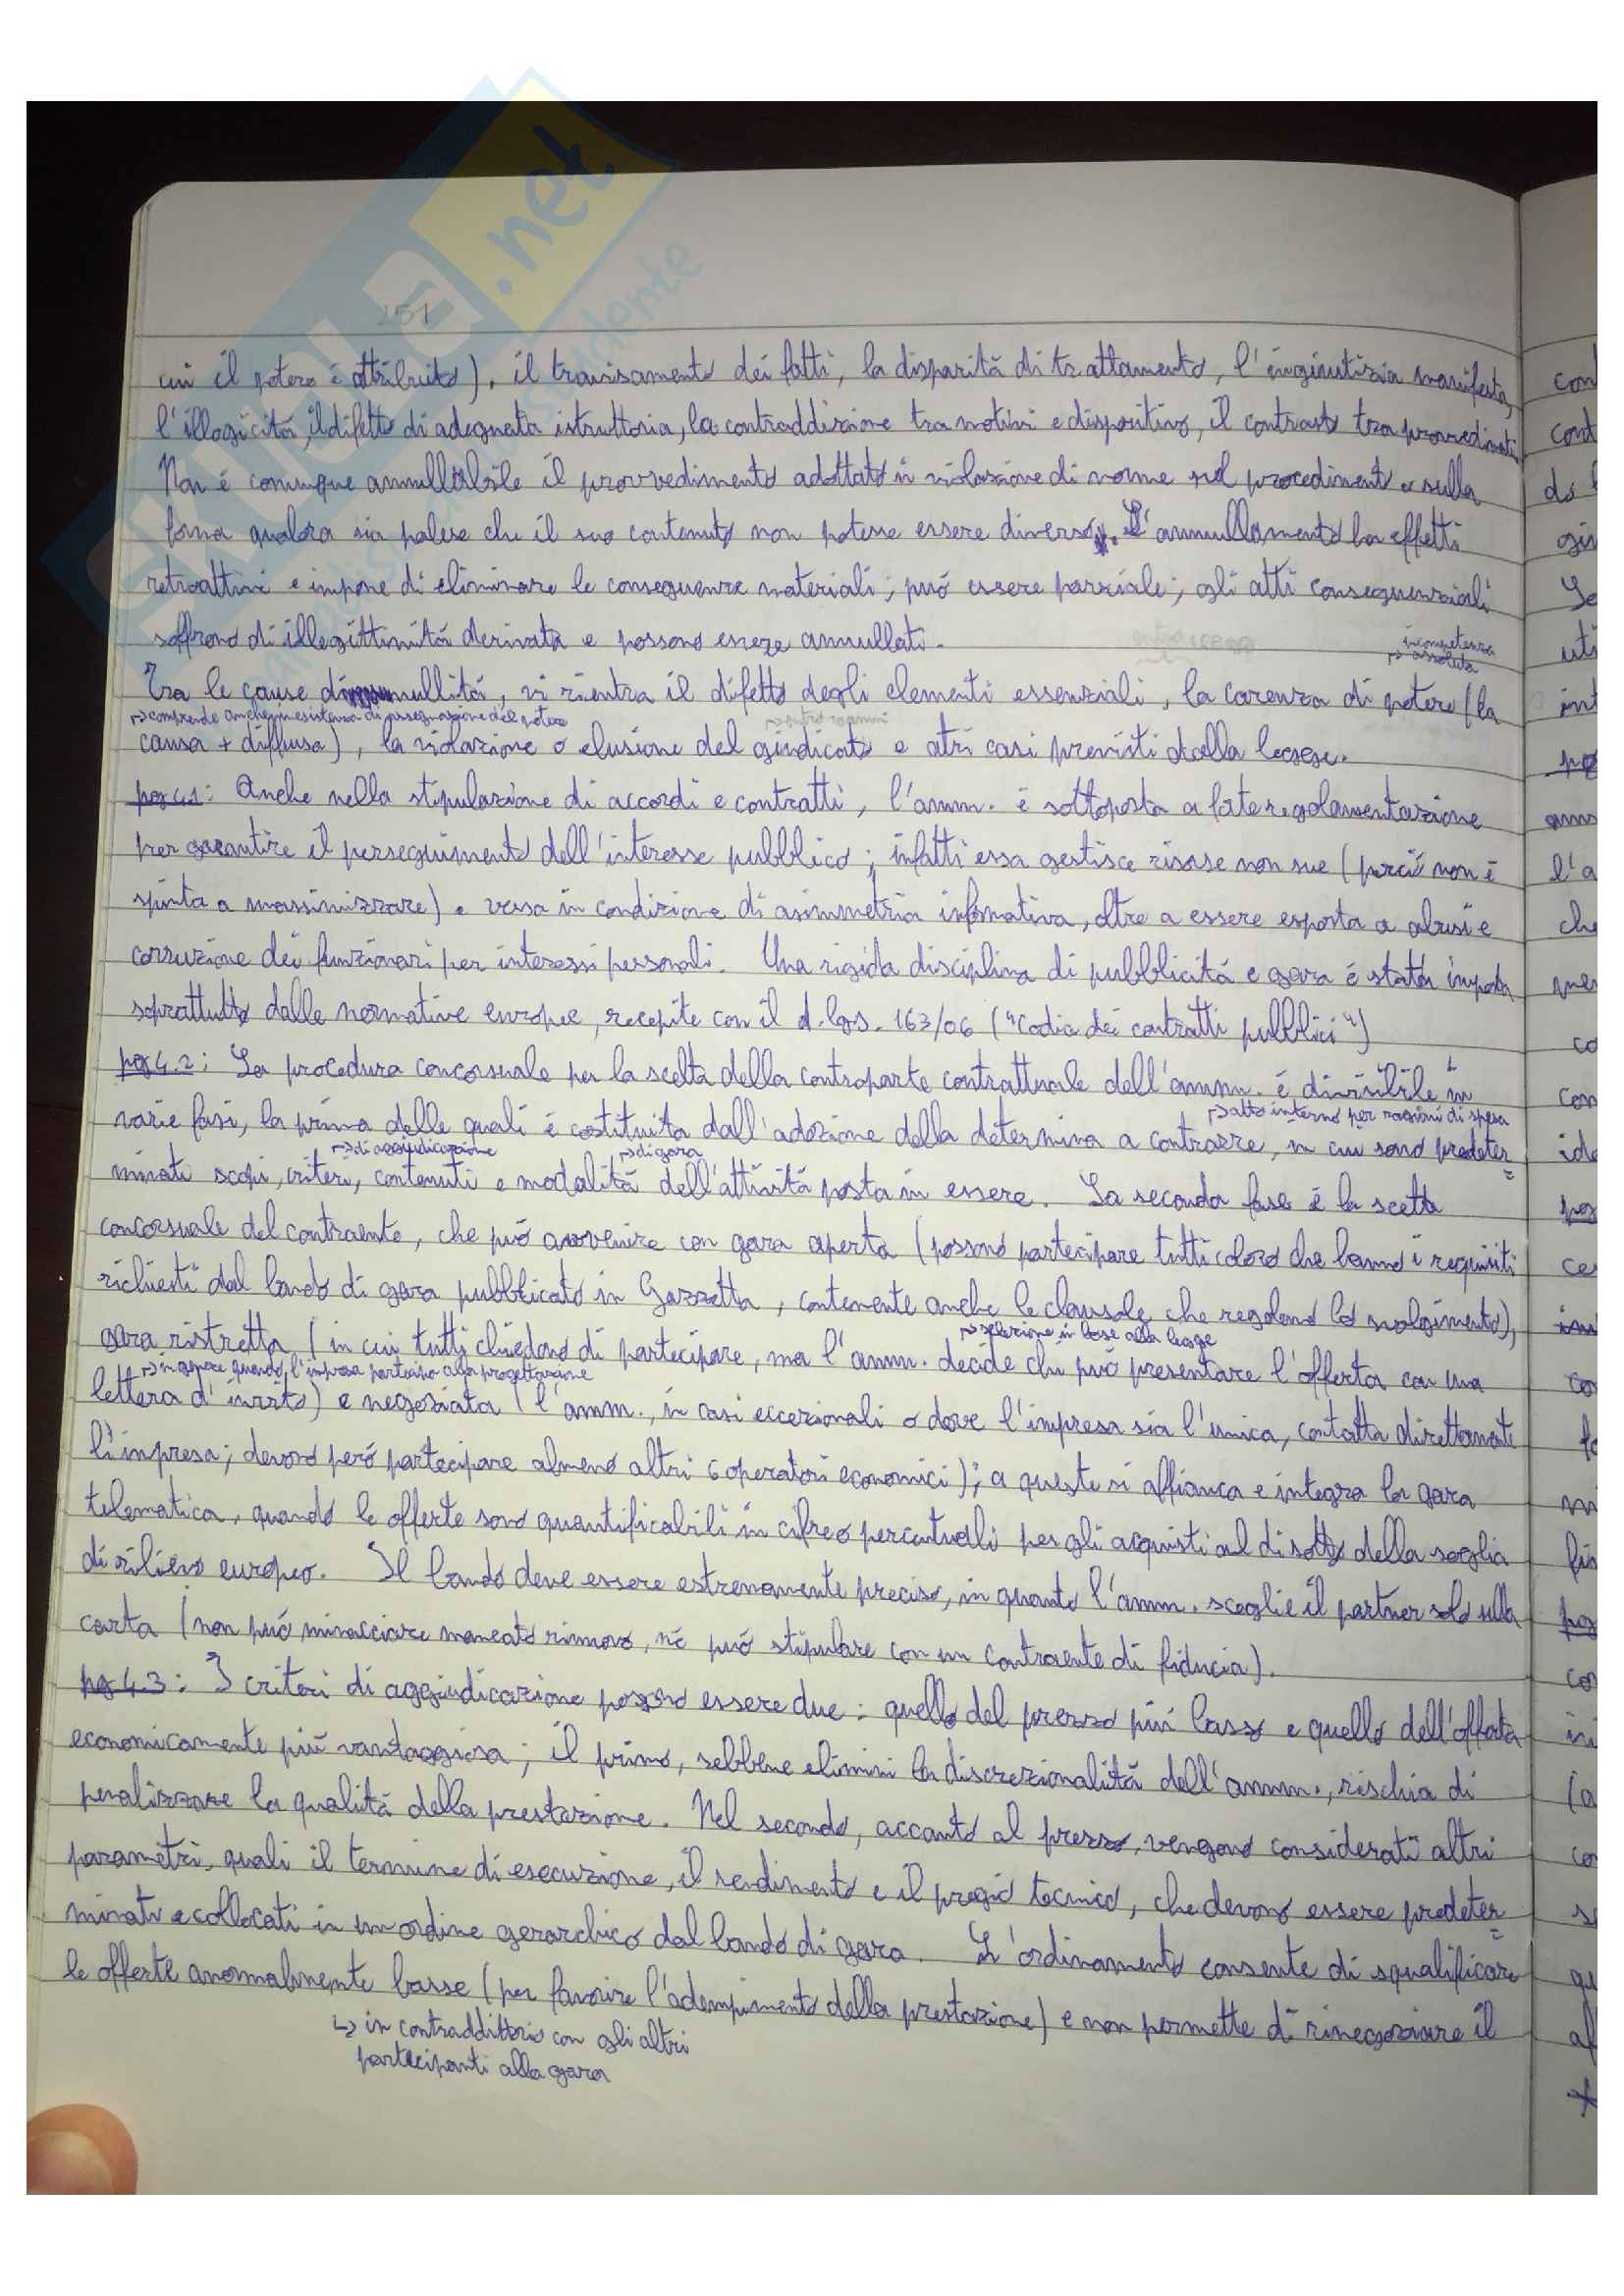 251
cui il potere è attribuito), il travisamento dei fatti, la disparità di trattamento, l'ingiustizia manifesta,
l'illogicità, il difetto di adeguata istruttoria, la contraddizione tra motivi e dispositivo, il contrasto tra provvedimenti
Non è comunque annullabile il provvedimento adottato in violazione di norme sul procedimento e sulla
forma qualora sia palese che il suo contenuto non potesse essere diverso. L'annullamento ha effetti
retroattivi e impone di eliminare le conseguenze materiali; può essere parziale; gli atti consequenziali
soffrono di illegittimità derivata e possono essere annullati.
incompetenza
↳ assoluta
Tra le cause di nullità, vi rientra il difetto degli elementi essenziali, la carenza di potere (la
↳ comprende anche inesistenza di assegnazione del potere
causa + diffusa), la violazione o elusione del giudicato e atri casi previsti dalla legge.
pg 4.1: Anche nella stipulazione di accordi e contratti, l'amm. è sottoposta a forte regolamentazione
per garantire il perseguimento dell'interesse pubblico; infatti essa gestisce risorse non sue (perciò non è
spinta a massimizzare) e versa in condizione di asimmetria informativa, oltre a essere esposta a abusi e
corruzione dei funzionari per interessi personali. Una rigida disciplina di pubblicità e gara è stata imposta
soprattutto dalle normative europee, recepite con il d.lgs. 163/06 ("Codice dei contratti pubblici")
pg 4.2: La procedura concorsuale per la scelta della controparte contrattuale dell'amm. è divisibile in
↳ atto interno per ragioni di spesa
varie fasi, la prima delle quali è costituita dall'adozione della determina a contrarre, in cui sono predeter
↳ di aggiudicazione ↳ di gara
minati scopi, criteri, contenuti e modalità dell'attività posta in essere. La seconda fase è la scelta
concorsuale del contraente, che può avvenire con gara aperta (possono partecipare tutti coloro che hanno i requisiti
richiesti dal bando di gara pubblicato in Gazzetta, contenente anche le clausole che regolano lo svolgimento),
↳ selezione in base alla legge
gara ristretta (in cui tutti chiedono di partecipare, ma l'amm. decide chi può presentare l'offerta con una
↳ in genere quando l'impresa partecipa alla progettazione
lettera d'invito) e negoziata (l'amm., in casi eccezionali o dove l'impresa sia l'unica, contatta direttamente
l'impresa; devono però partecipare almeno altri 6 operatori economici); a queste si affianca e integra la gara
telematica, quando le offerte sono quantificabili in cifre o percentuali per gli acquisti al di sotto della soglia
di rilievo europeo. Il bando deve essere estremamente preciso, in quanto l'amm. sceglie il partner solo sulla
carta (non può minacciare mancato rinnovo, né può stipulare con un contraente di fiducia).
pg 4.3: I criteri di aggiudicazione possono essere due: quello del prezzo più basso e quello dell'offerta
economicamente più vantaggiosa; il primo, sebbene elimini la discrezionalità dell'amm., rischia di
penalizzare la qualità della prestazione. Nel secondo, accanto al prezzo, vengono considerati altri
parametri, quali il termine di esecuzione, il rendimento e il pregio tecnico, che devono essere predeter
minati e collocati in un ordine gerarchico dal bando di gara. L'ordinamento consente di squalificare
le offerte anormalmente basse (per favorire l'adempimento della prestazione) e non permette di rinegoziare il
↳ in contraddittorio con gli altri
partecipanti alla gara